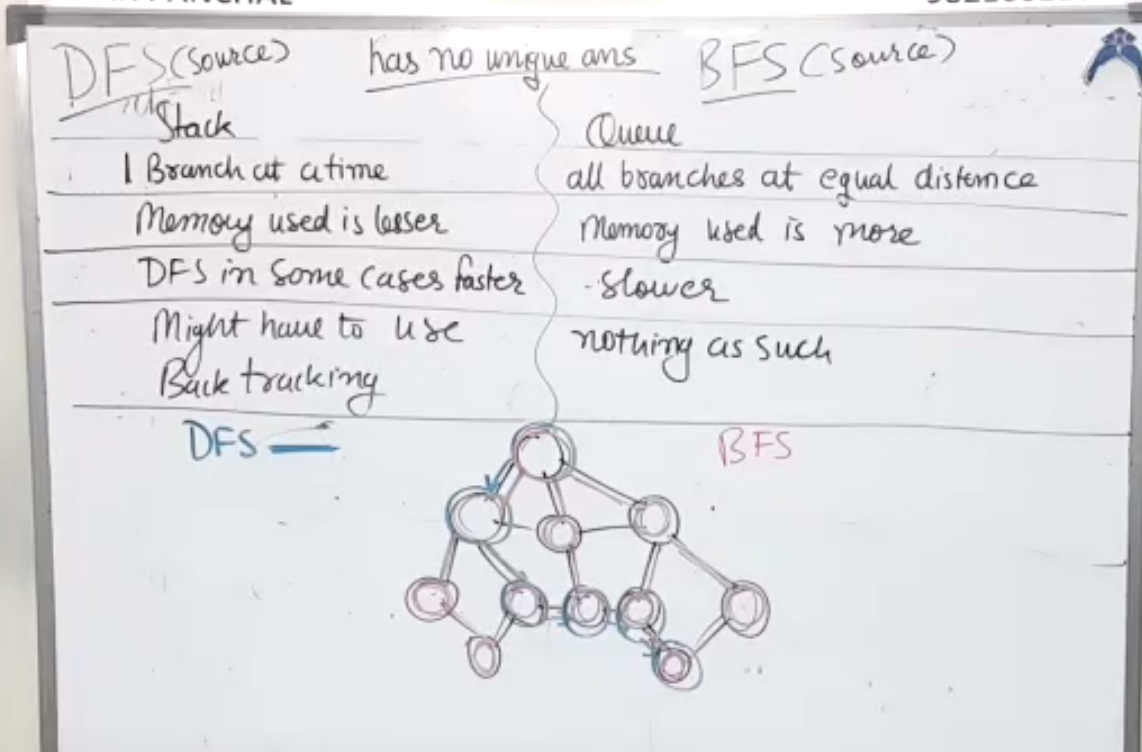 DFS (source) has no unique ans BFS (source)
Stack Queue
1 Branch at a time all branches at equal distance
Memory used is lesser Memory used is more
DFS in some cases faster slower
Might have to use nothing as such
Back tracking
DFS BFS